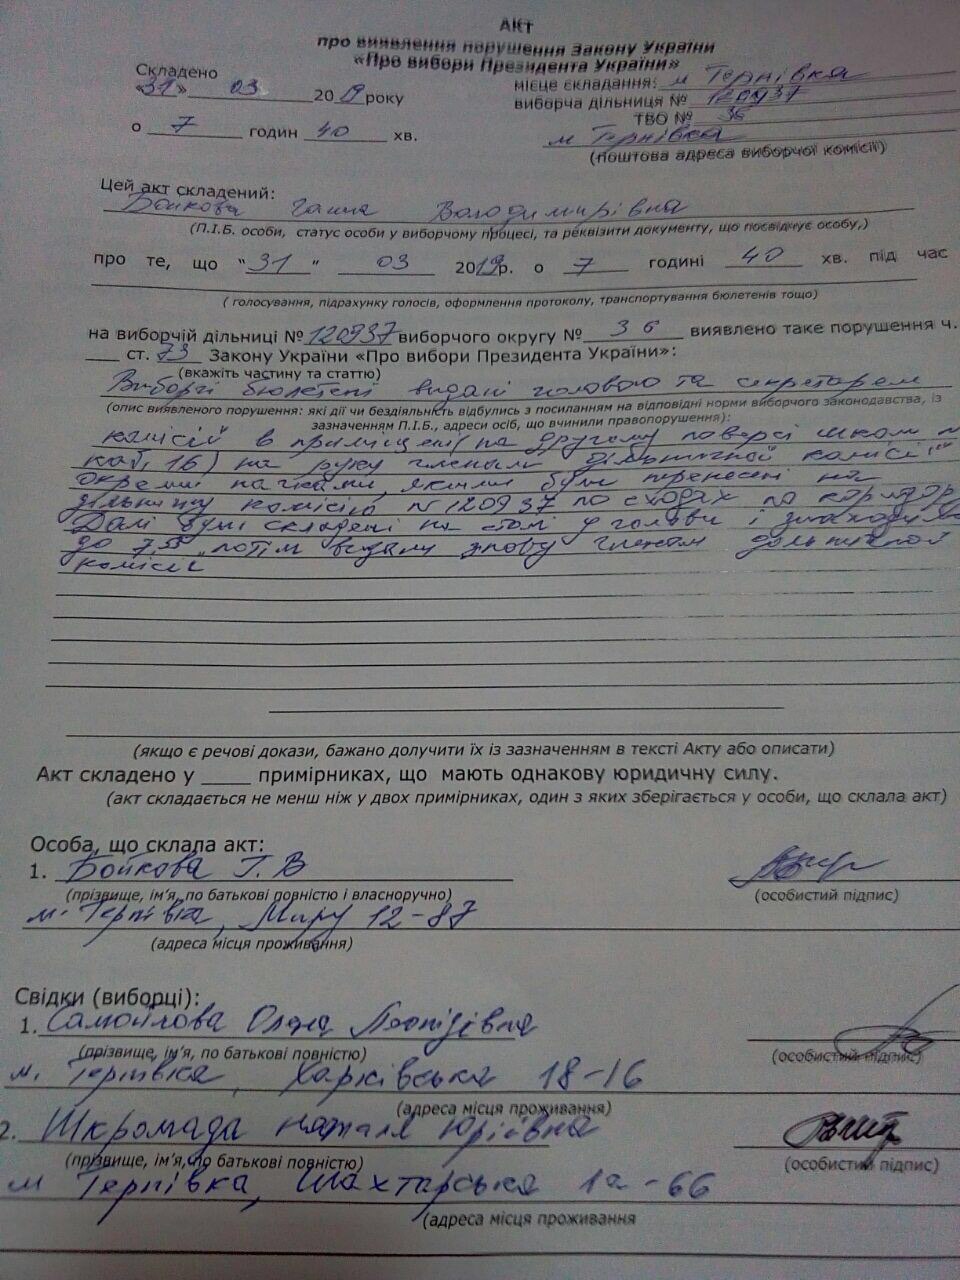 АКТ
про виявлення порушення Закону України
«Про вибори Президента України»
Складено
«31» 03 2019 року
місце складання: м Тернівка
виборча дільниця № 120937
ТВО № 36
о 7 годин 40 хв.
м Тернівка
(поштова адреса виборчої комісії)
Цей акт складений:
Бойкова Ганна Володимирівна
(П.І.Б. особи, статус особи у виборчому процесі, та реквізити документу, що посвідчує особу,)
про те, що "31" 03 2019р. о 7 годині 40 хв. під час
( голосування, підрахунку голосів, оформлення протоколу, транспортування бюлетенів тощо)
на виборчій дільниці № 120937 виборчого округу № 36 виявлено таке порушення ч.
___ ст. 73 Закону України «Про вибори Президента України»:
(вкажіть частину та статтю)
Виборчі бюлетені видані головою та секретарем
(опис виявленого порушення: які дії чи бездіяльність відбулись з посиланням на відповідні норми виборчого законодавства, із
зазначенням П.І.Б., адреси осіб, що вчинили правопорушення):
комісій в приміщені (на другому поверсі школи
каб. 16) на руку членам дільничной комісій
окремі пачками, якими були перенесені на
дільницу комісію № 120937 по сходах по коридору
Далі були складені на столі у голови і
до 7,55 потім видали знову членам дільничной
комісії
(якщо є речові докази, бажано долучити їх із зазначенням в тексті Акту або описати)
Акт складено у ____ примірниках, що мають однакову юридичну силу.
(акт складається не менш ніж у двох примірниках, один з яких зберігається у особи, що склала акт)
Особа, що склала акт:
1. Бойкова Г. В
(прізвище, ім'я, по батькові повністю і власноручно)
(особистий підпис)
м. Тернівка, Миру 12-87
(адреса місця проживання)
Свідки (виборці):
1. Самойлова Олена Леонідівна
(прізвище, ім'я, по батькові повністю)
(особистий підпис)
м. Тернівка, Харківська 18-16
(адреса місця проживання)
2. Шкромада Наталя Юріївна
(прізвище, ім'я, по батькові повністю)
(особистий підпис)
м Тернівка, Шахтарська 1а-66
(адреса місця проживання